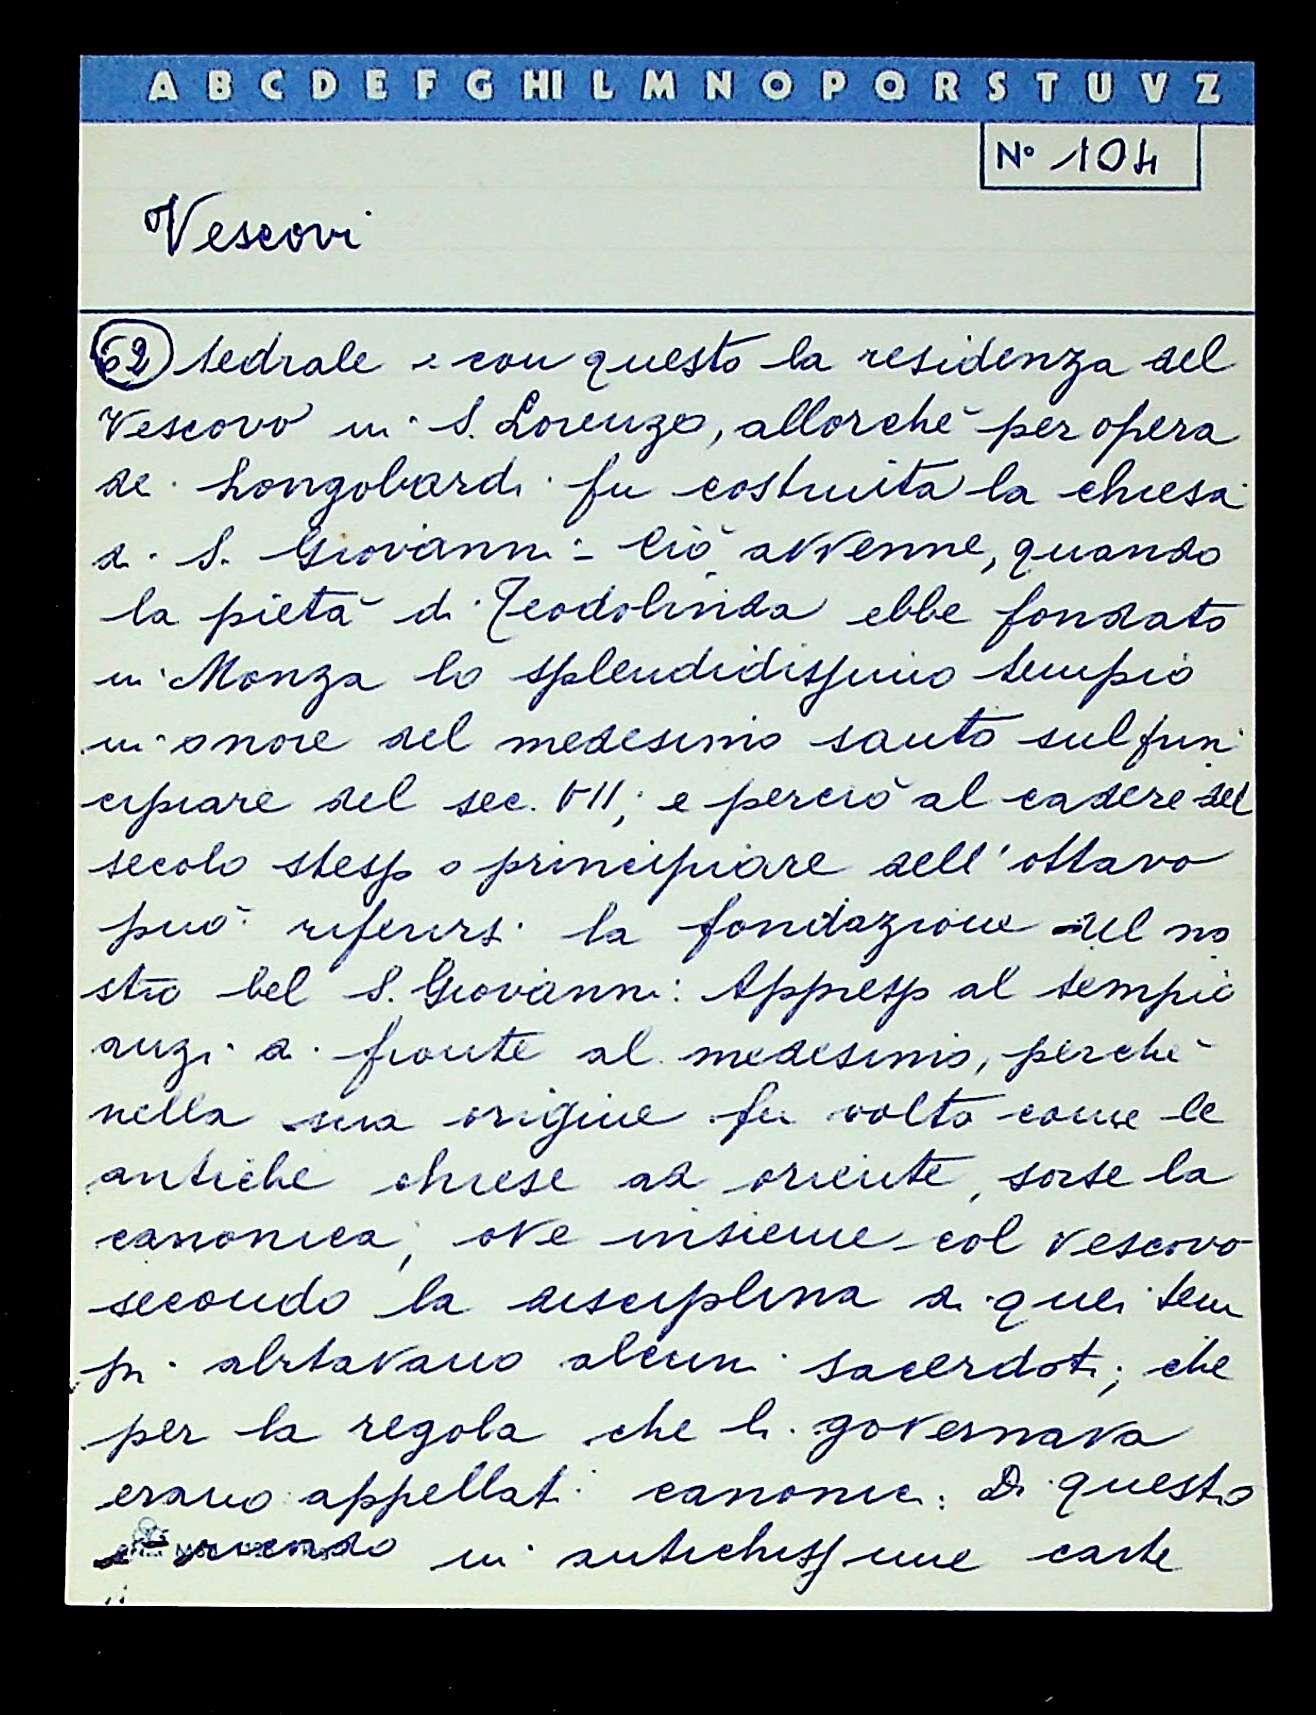 A B C D E F G H I L M N O P Q R S T U V Z
N° 104
Vescovi
62 tedrale e con questo la residenza del
Vescovo in S. Lorenzo, allorchè per opera
de Longobardi fu costruita la chiesa
di S. Giovanni = Ciò avvenne, quando
la pietà di Teodolinda ebbe fondato
in Monza lo splendidissimo tempio
in onore del medesimo santo sul prin
cipiare del sec. VII; e perciò al cadere del
secolo stesso o principiare dell'ottavo
può riferirsi la fondazione del no
stro bel S. Giovanni: Appresso al tempio
anzi di fronte al medesimo, perchè
nella sua origine fu volto come le
antiche chiese ad oriente, sorse la
canonica, ove insieme col vescovo
secondo la disciplina di quei tem
pi abitavano alcuni sacerdoti; che
per la regola che li governava
erano appellati canonici. Di questo
in antichissime carte